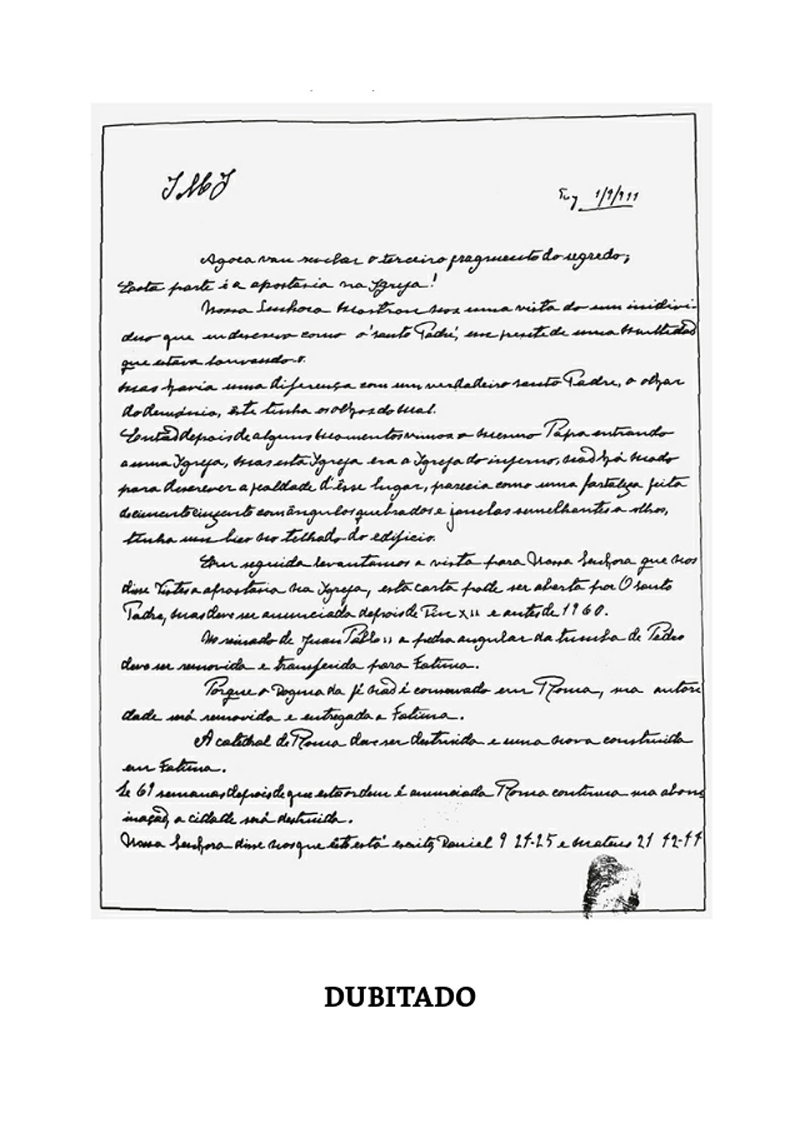 JMJ
Tuy 1/9/944
Agora vou revelar o terceiro fragmento do segredo;
Esta parte é a apostasia na Igreja!
Nossa Senhora mostrou nos uma vista do um inidivi-
duo que eu descrevo como o 'santo Padre', em frente de uma multidaõ
que estava louvando o.
Mas havia uma diferença com um verdadeiro santo Padre, o olhar
do demónio, êste tinha os olhos do mal.
Entaõ depois de alguns momentos vimos o mesmo Papa entrando
a uma Igreja, mas esta Igreja era a Igreja do inferno, naõ há modo
para descrever a fealdade d'êsse lugar, parecia como uma fortaleza feita
de cimento cinzento com ângulos quebrados e janelas semelhantes a olhos,
tinha um bico no telhado do edificio.
Em seguida levantamos a vista para Nossa Senhora que nos
disse Vistes a apostasia na Igreja, esta carta pode ser aberta por O santo
Padre, mas deve ser anunciada depois de Pio XII e antes de 1960.
No reinado de Juan Pablo II a pedra angular da tumba de Pedro
deve ser removida e transferida para Fatima.
Porque o Dogma da fé naõ é conservado em Roma, sua autori
dade será removida e entregada a Fatima.
A catedral de Roma deve ser destruida e uma nova construida
em Fatima.
Se 69 semanas depois de que esta ordem é anunciada Roma continua sua abom
inaçaõ, a cidade será destruida.
Nossa Senhora disse nos que êste está escrito, Daniel 9 24-25 e Mateus 21 42-44
DUBITADO